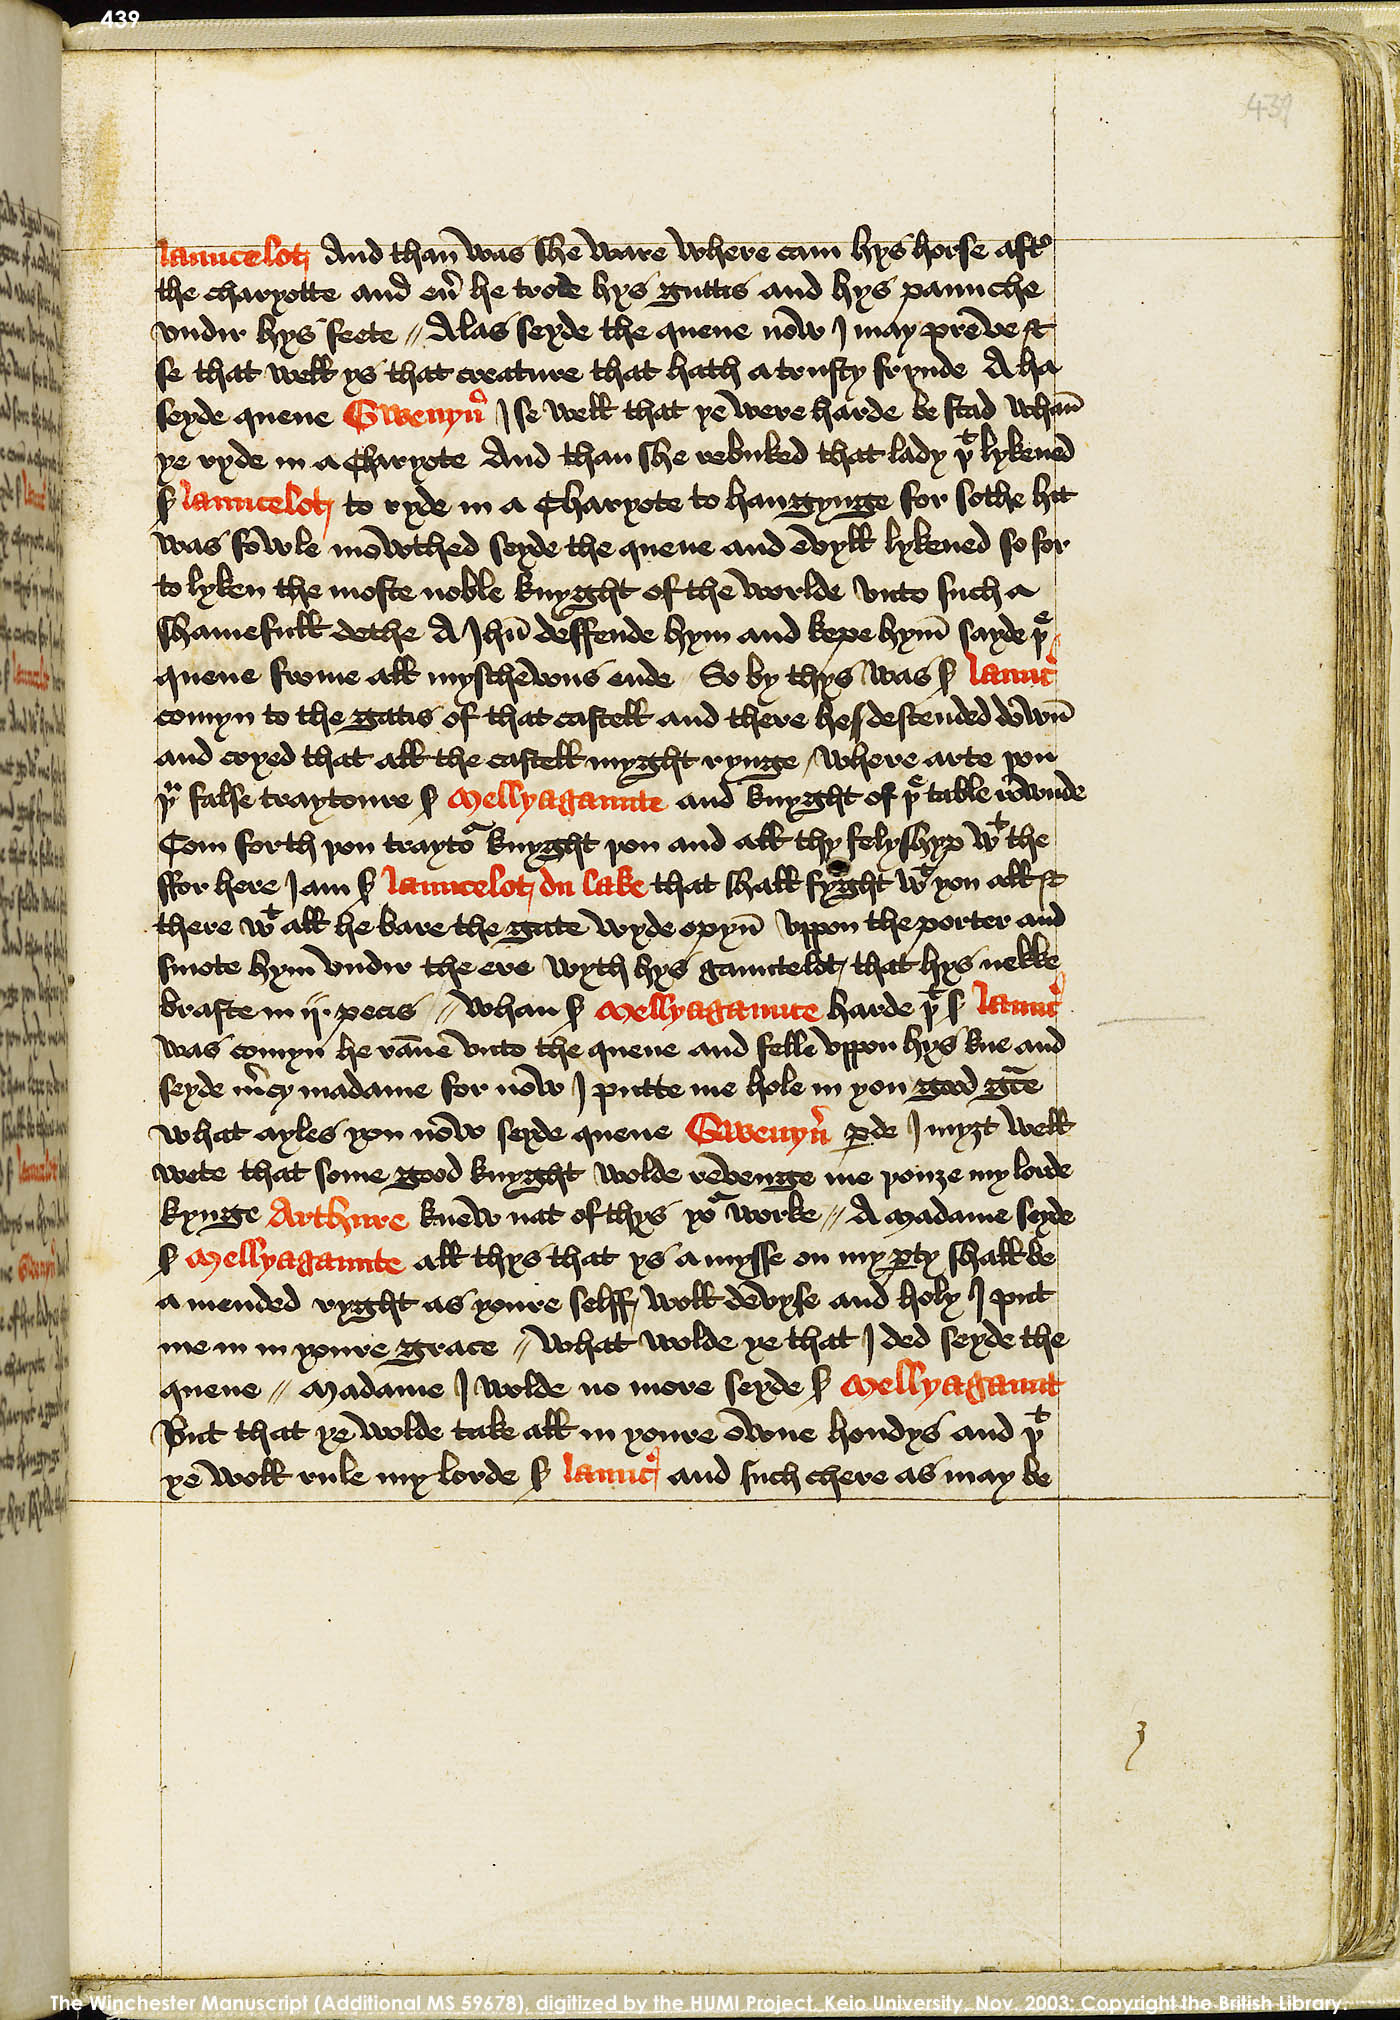 439
439
launcelot And than̄ was she ware where cam hys horse aft̉
the charyotte and eủ he trode hys guttis and hys paunche
vndir hys feete // Alas seyde the quene now I may preve &
se that well ys that creature that hath a trusty frynde A ha
seyde quene Gwenyủ I se well that ye were harde be stad whan̄
ye ryde in a Charyote And than she rebuked that lady þͭ lykened
S̉ launcelot to ryde in a Charyote to hangynge for sothe hit
was fowle mowthed seyde the quene and evyll lykened so for
to lyken the moste noble knyght of the worlde vnto such a
shamefull dethe A Jhū deffende hym and kepe hym̄ sayde þͤ
quene frome all myschevous ende So by thys was S̉ launc̉
comyn to the gatis of that castell and there he descended down̄
and cryed that all the castell myght rynge / where arte þou
þủ false traytoure S̉ Mellyagaunte and knyght of þͤ table rownde
Com forth þou traytoͬ knyght þou and all thy felyshyp wͭ the
ffor here I am S̉ launcelot du lake that shall fyght wͭ you all &
there wͭ all he bare the gate wyde opyn̄ vppon the porter and
smote hym vndir the ere wyth hys gauntelot that hys nekke
braste in ij. pecis // whan S̉ Mellyagaunce harde þͭ S̉ launc̉
was comyn he rāne vnto the quene and felle vppon hys kne and
seyde m̉cy madame for now I putte me hole in your good gāce
what ayles you now seyde quene Gwenyủ ꝑde I myȝt well
wete that some good knyght wolde revenge me þouȝe my lorde
kynge Arthure knew nat of thys yoͬ worke // A Madame seyde
S̉ Mellyagaunte all thys that ys a mysse on my ꝑty shall be
a mended ryght as youre selff woll devyse and holy I put
me in in youre grace // what wolde ye that I ded seyde the
quene // Madame I wolde no more seyde S̉ Mellyagaunt
But that ye wolde take all in youre owne hondys and þͭ
ye woll rule my lorde S̉ launc̉ and such chere as may be
The Winchester Manuscript (Additional MS 59678), digitized by the HUMI Project, Keio University, Nov. 2003; Copyright the British Library.